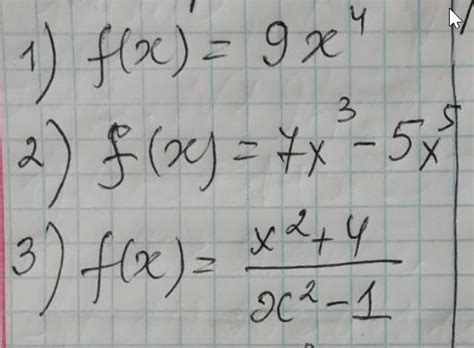 1) f(x) = 9x⁴
2) f(x) = 7x³ - 5x⁵
3) f(x) = (x² + 4)/(x² - 1)